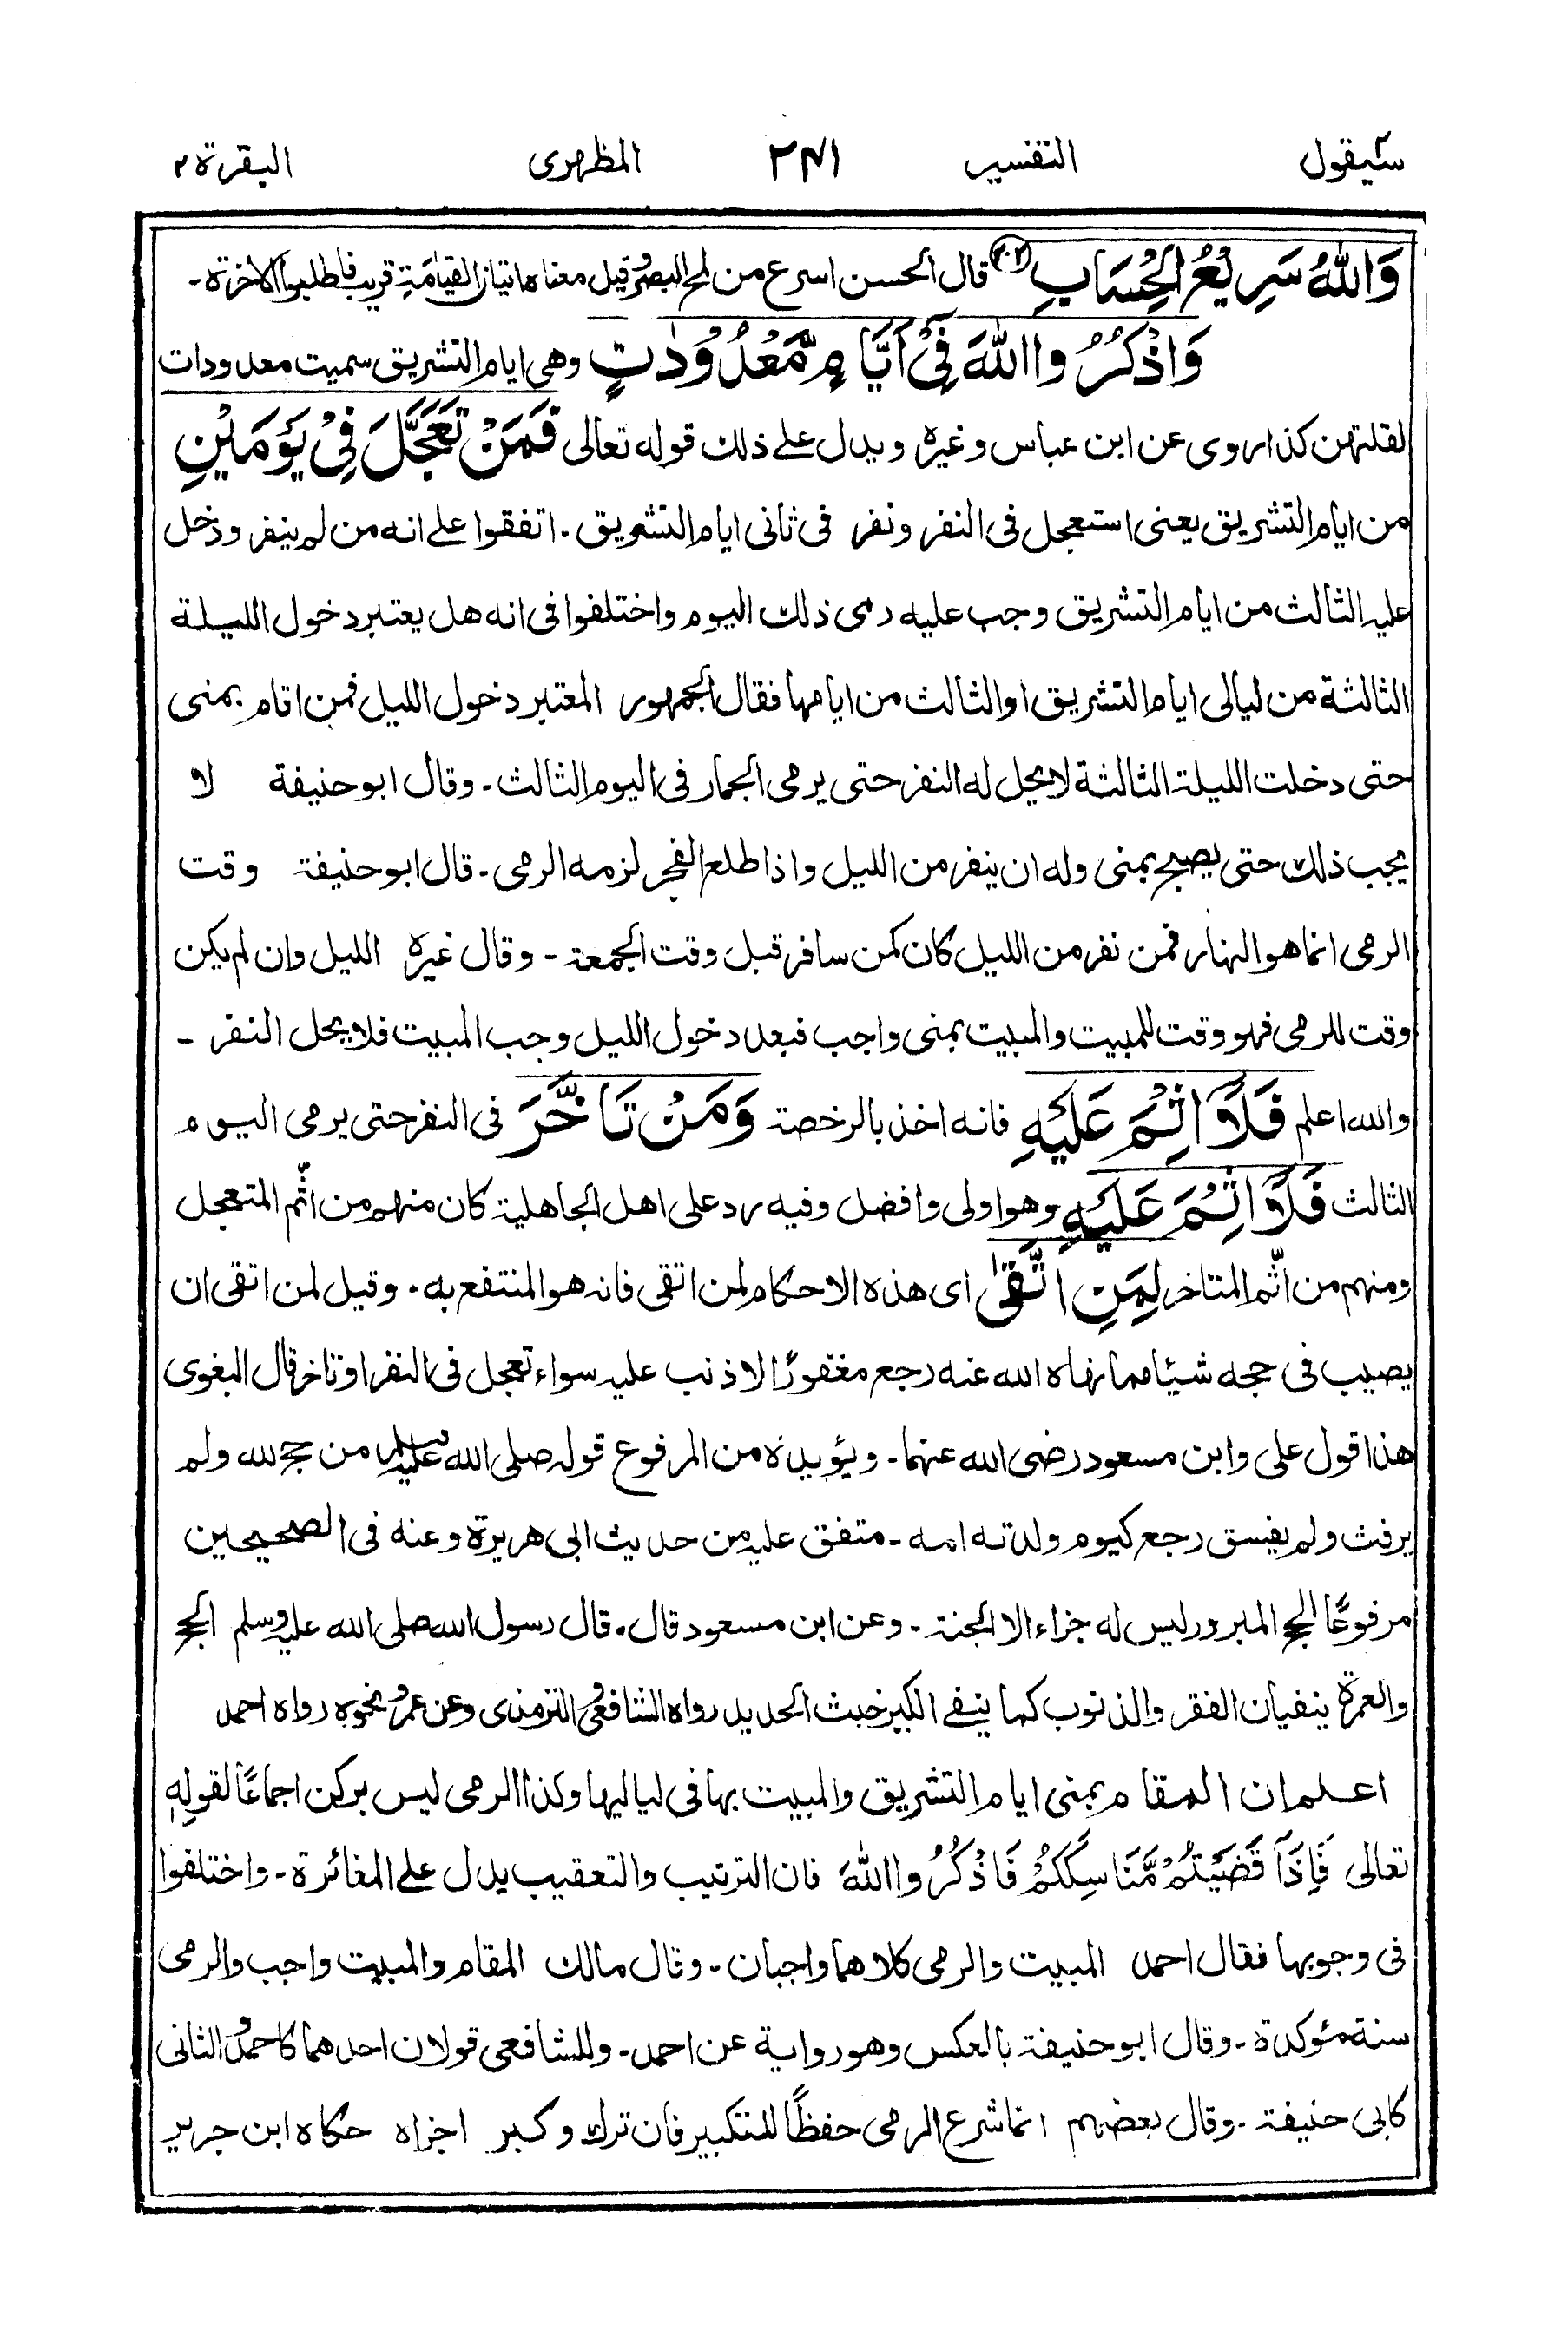 سيقول التفسير ٢٤١ المظهرى البقرة ٢
وَاللّٰهُ سَرِيْعُ الْحِسَابِ ٢٠٢ قال الحسن اسرع من لمح البصر وقيل معناه اتيان القيامة قريب فاطلبوا الاخرة -
وَاذْكُرُوا اللّٰهَ فِىْٓ اَيَّامٍ مَّعْدُوْدٰتٍ وهى ايام التشريق سميت معدودات
لقلتهن كذا روى عن ابن عباس وغيره ويدل على ذلك قوله تعالى فَمَنْ تَعَجَّلَ فِىْ يَوْمَيْنِ
من ايام التشريق يعنى استعجل فى النفر ونفر فى ثانى ايام التشريق - اتفقوا على انه من لم ينفر ودخل
عليه الثالث من ايام التشريق وجب عليه رمى ذلك اليوم واختلفوا فى انه هل يعتبر دخول الليلة
الثالثة من ليالى ايام التشريق او الثالث من ايامها فقال الجمهور المعتبر دخول الليل فمن اقام بمنى
حتى دخلت الليلة الثالثة لا يحل له النفر حتى يرمى الجمار فى اليوم الثالث - وقال ابو حنيفة لا
يجب ذلك حتى يصبح بمنى وله ان ينفر من الليل واذا طلع الفجر لزمه الرمى - قال ابو حنيفة وقت
الرمى انما هو النهار فمن نفر من الليل كان كمن سافر قبل وقت الجمعة - وقال غيره الليل وان لم يكن
وقت للرمى فهو وقت للمبيت والمبيت بمنى واجب فبعد دخول الليل وجب المبيت فلا يحل النفر -
والله اعلم فَلَآ اِثْمَ عَلَيْهِ فانه اخذ بالرخصة وَمَنْ تَاَخَّرَ فى النفر حتى يرمى اليوم
الثالث فَلَآ اِثْمَ عَلَيْهِ وهو اولى وافضل وفيه رد على اهل الجاهلية كان منهم من اثّم المتعجل
ومنهم من اثّم المتاخر لِمَنِ اتَّقٰى اى هذه الاحكام لمن اتقى فانه هو المنتفع به - وقيل لمن اتقى ان
يصيب فى حجه شيئا مما نهاه الله عنه رجع مغفورًا لا ذنب عليه سواء تعجل فى النفر او تاخر قال البغوى
هذا قول على وابن مسعود رضى الله عنهما - ويؤيده من المرفوع قوله صلى الله عليه وسلم من حج لله ولم
يرفث ولم يفسق رجع كيوم ولدته امه - متفق عليه من حديث ابى هريرة وعنه فى الصحيحين
مرفوعًا الحج المبرور ليس له جزاء الا الجنة - وعن ابن مسعود قال - قال رسول الله صلى الله عليه وسلم الحج
والعمرة ينفيان الفقر والذنوب كما ينفى الكير خبث الحديد رواه الشافعى والترمذى وعن عمر ونحوه رواه احمد
اعلم ان المقام بمنى ايام التشريق والمبيت بها فى لياليها وكذا الرمى ليس بركن اجماعًا لقوله
تعالى فَاِذَآ قَضَيْتُمْ مَّنَاسِكَكُمْ فَاذْكُرُوا اللّٰهَ فان الترتيب والتعقيب يدل على المغائرة - واختلفوا
فى وجوبها فقال احمد المبيت والرمى كلاهما واجبان - وقال مالك المقام والمبيت واجب والرمى
سنة مئوكدة - وقال ابو حنيفة بالعكس وهو رواية عن احمد - وللشافعى قولان احدهما كاحمد والثانى
كابى حنيفة - وقال بعضهم انما شرع الرمى حفظًا للتكبير فان ترك وكبر اجزاه حكاه ابن جرير